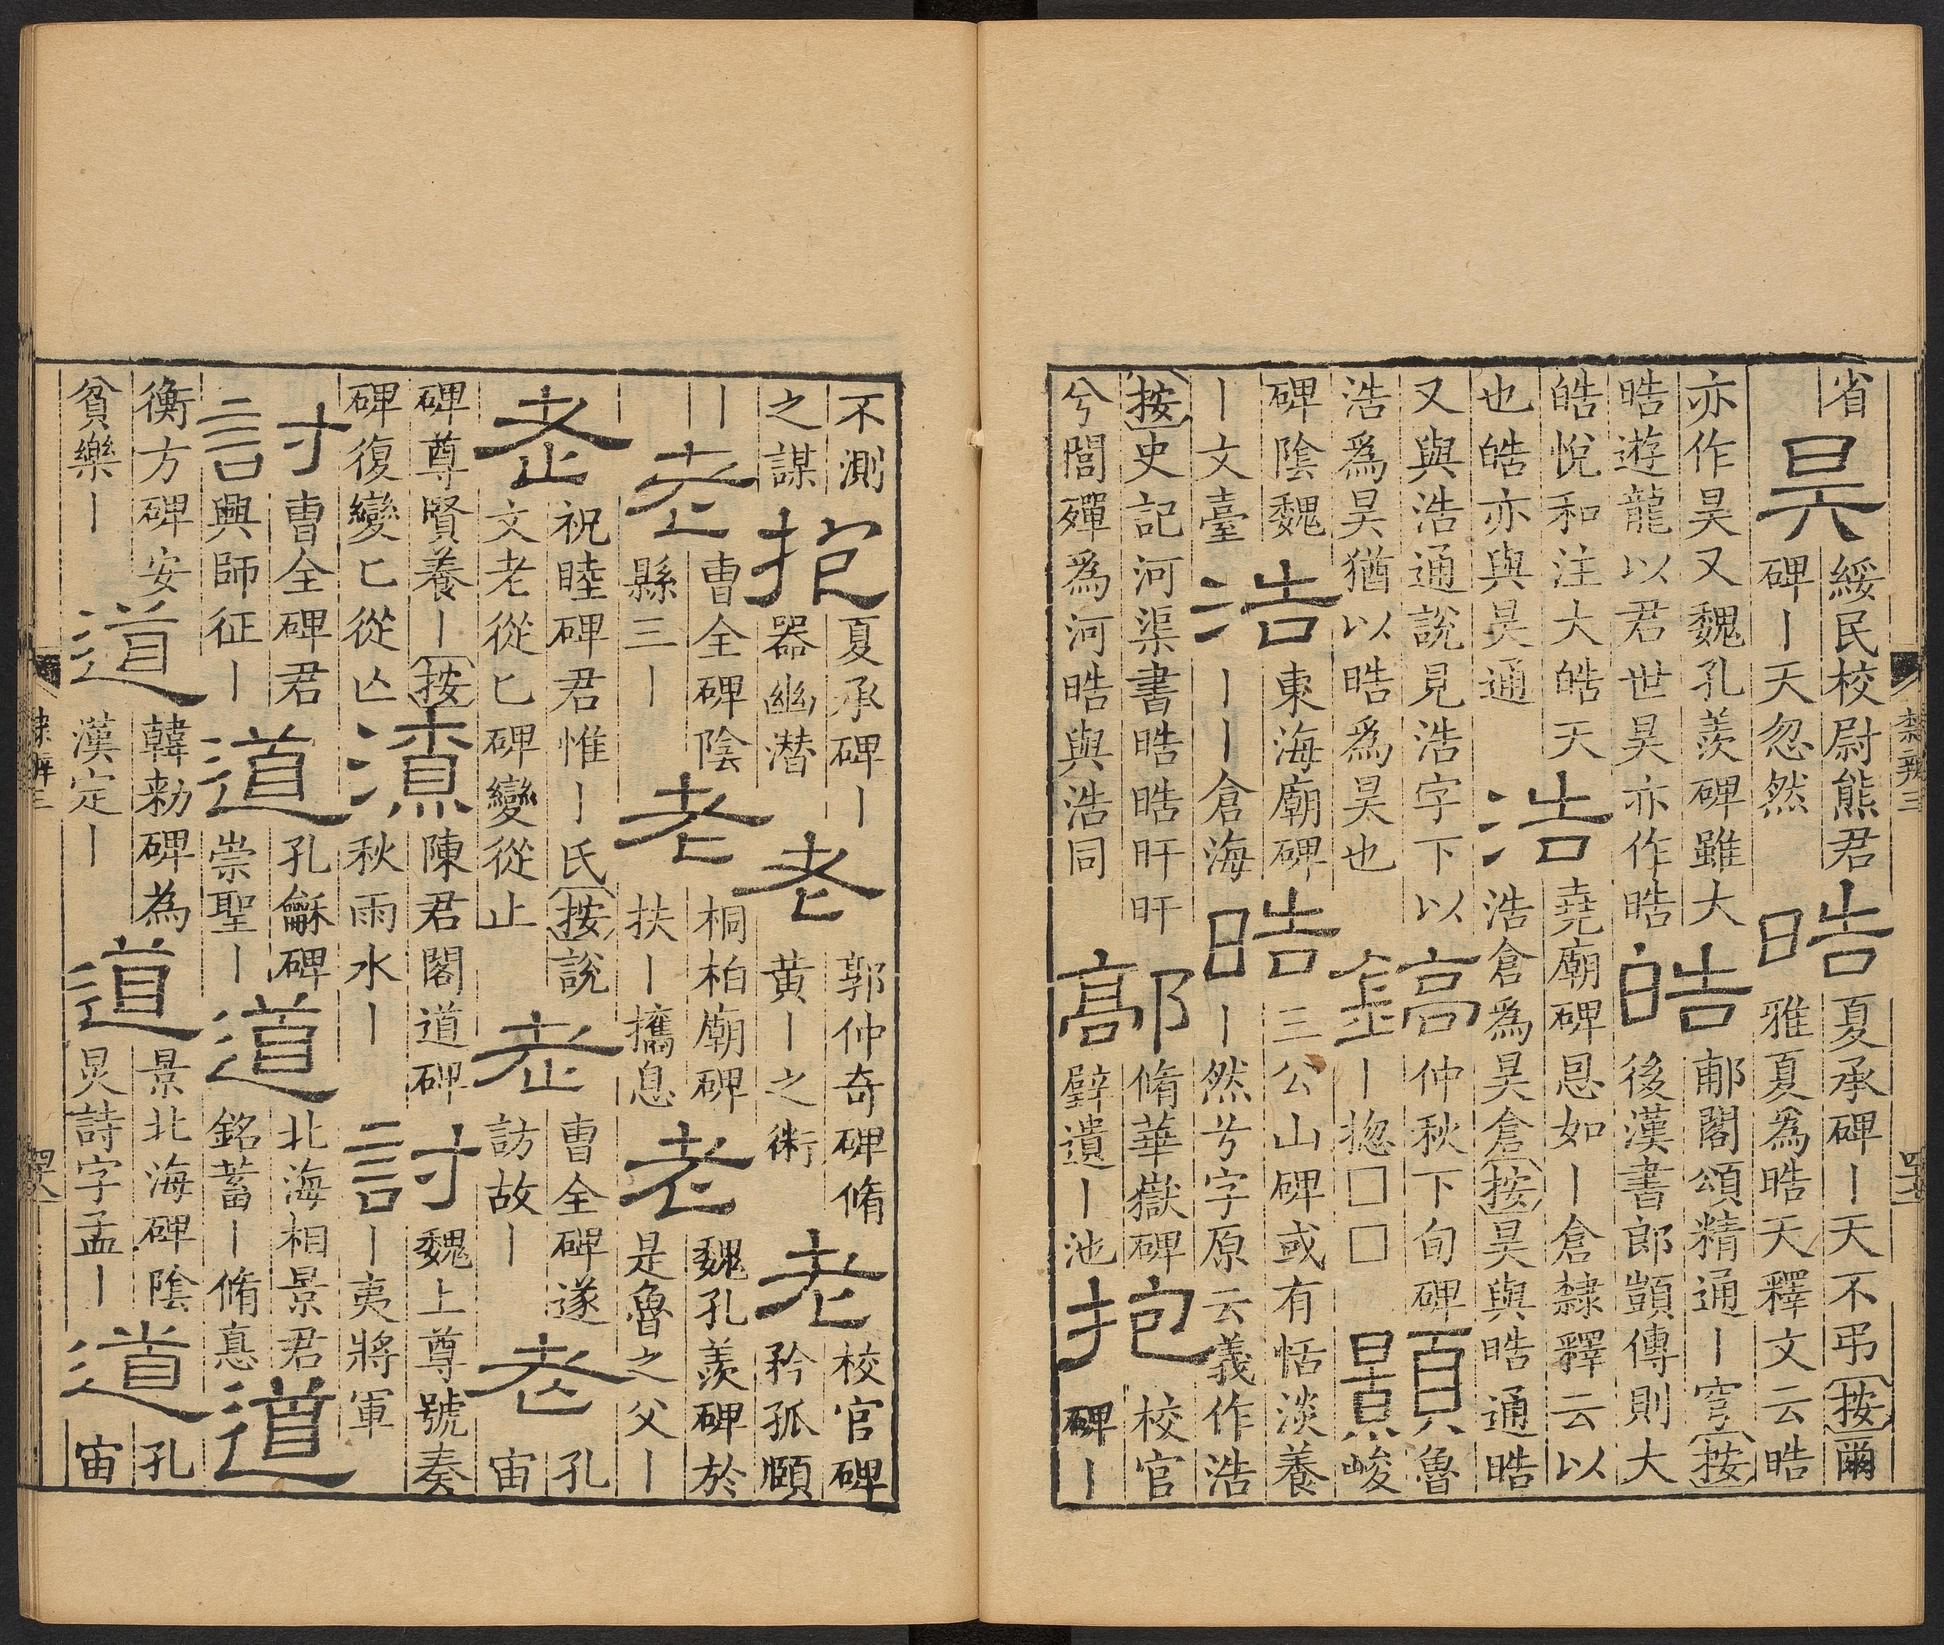 省
昊
綏民校尉熊君
碑丨天忽然
晧
夏承碑丨天不弔按爾
雅夏為晧天釋文云晧
亦作昊又魏孔羨碑雖大
晧遊龍以君世昊亦作晧
皓
郙閣頌精通丨穹按
後漢書郎顗傳則大
皓悅和注大皓天
也皓亦與昊通
浩
堯廟碑恩如丨倉隸釋云以
浩倉為昊倉按昊與晧通晧
又與浩通說見浩字下以
浩爲昊猶以晧爲昊也
鎬
仲秋下旬碑
丨摠□□
顥
魯
峻
碑陰魏
丨文臺
浩
東海廟碑
丨丨丨倉海
晧
三公山碑或有恬淡養
丨然兮字原云義作浩
按史記河渠書晧晧旰旰
兮閭殫爲河晧與浩同
鄗
脩華嶽碑
躃遺丨池
抱
校官
碑丨
隸辨三
不測
之謀
抱
夏承碑丨
器幽潛
老
郭仲奇碑脩
黃丨之術
老
校官碑
矜孤頤
丨
老
曹全碑陰
縣三丨
老
桐柏廟碑
扶丨攜息
老
魏孔羨碑於
是魯之父丨
老
祝睦碑君惟丨氏按說
文老從匕碑變從止
老
曹全碑遂
訪故丨
老
孔
宙
碑尊賢養丨按
碑復變匕從亾
潦
陳君閣道碑
秋雨水丨
討
魏上尊號奏
丨夷將軍
討
曹全碑君
興師征丨
道
孔龢碑
崇聖丨
道
北海相景君
銘蓄丨脩悳
道
衡方碑安
貧樂丨
道
韓勑碑為
漢定丨
道
景北海碑陰
晃詩字孟丨
道
孔
宙